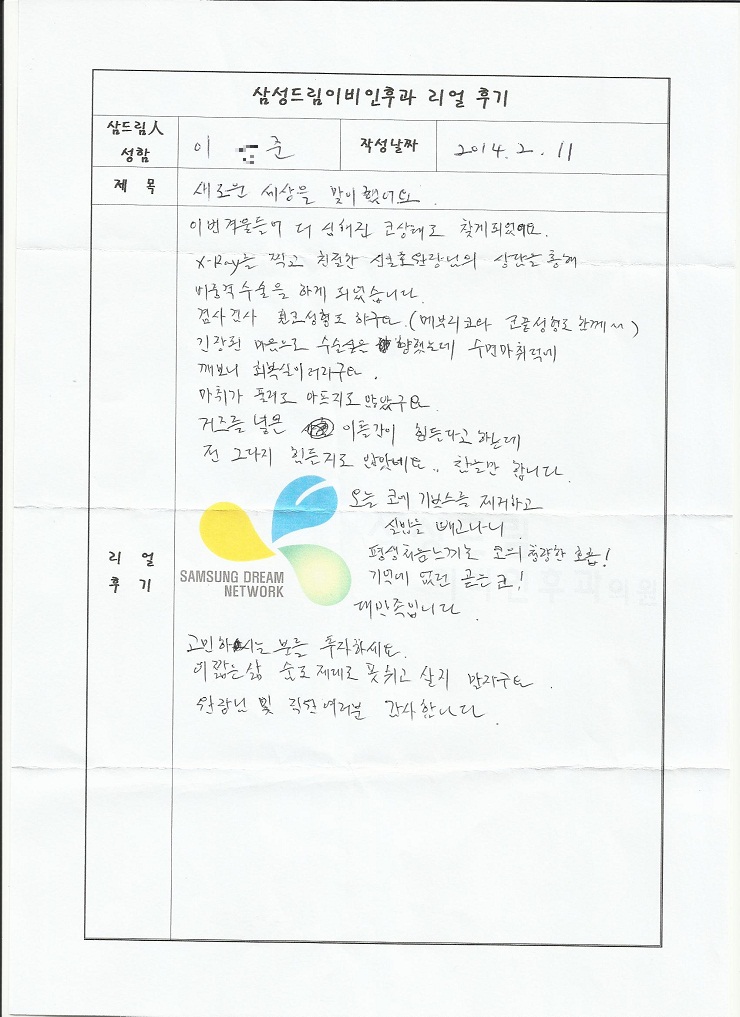 삼성드림이비인후과 리얼 후기
삼드림人
성함
이 준
작성날짜
2014. 2. 11
제 목
새로운 세상을 맞이했어요.
이번겨울들어 더 심해진 코상태로 찾게되었어요.
X-Ray를 찍고 친절한 신일호원장님의 상담을 통해
비중격수술을 하게 되었습니다.
겸사겸사 휜코성형도 하구요.(메부리코와 코끝성형도 함께~)
긴장된 마음으로 수술실은 향했는데 수면마취덕에
깨보니 회복실이더라구요.
마취가 풀려도 아프지도 않았구요
거즈를 넣은 이틀간이 힘든다고 하는데
전 그다지 힘든지도 않았네요.. 한숨만 합니다.
리 얼
후 기
오늘 코에 기브스를 제거하고
실밥을 떼고나니
평생처음느끼는 코의 청량한 호흡!
기억에 없던 곧은코!
대만족입니다.
SAMSUNG DREAM
NETWORK
고민하시는 분들 투자하세요.
이 짧은삶 숨도제대로 못쉬고 살지 말자구요.
원장님 및 직원여러분 감사합니다.